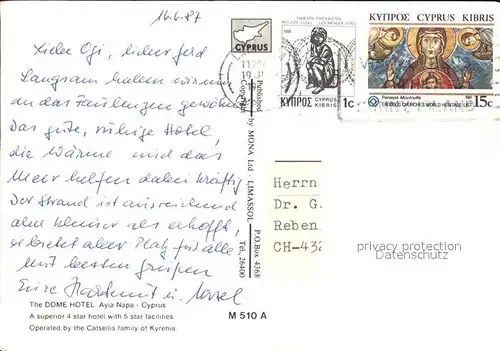 16.6.87
Liebe Ogi, lieber Gerd
Langsam haben wir uns
an das Faulenzen gewöhnt
Das gute, ruhige Hotel,
die Wärme und das
Meer helfen dabei kräftig
Der Strand ist ausreichend
aber kleiner als erhofft,
er bietet aber Platz für alle
Mit besten Grüßen
The DOME HOTEL. Ayia Napa - Cyprus
A superior 4 star hotel with 5 star facilities.
Operated by the Catsellis family of Kyrenia.
M 510 A
Published
Copyright
by MONA Ltd - LIMASSOL
P.O.Box 4368
Tel. 26400
CYPRUS
1988
ΚΥΠΡΟΣ CYPRUS KIBRIS 1c
ΚΥΠΡΟΣ CYPRUS KIBRIS
Panayia Moutoulla 1987
TROODOS CHURCHES WORLD HERITAGE LIST 15c
Herrn
Dr. G.
Reben
CH-432
privacy protection
Datenschutz